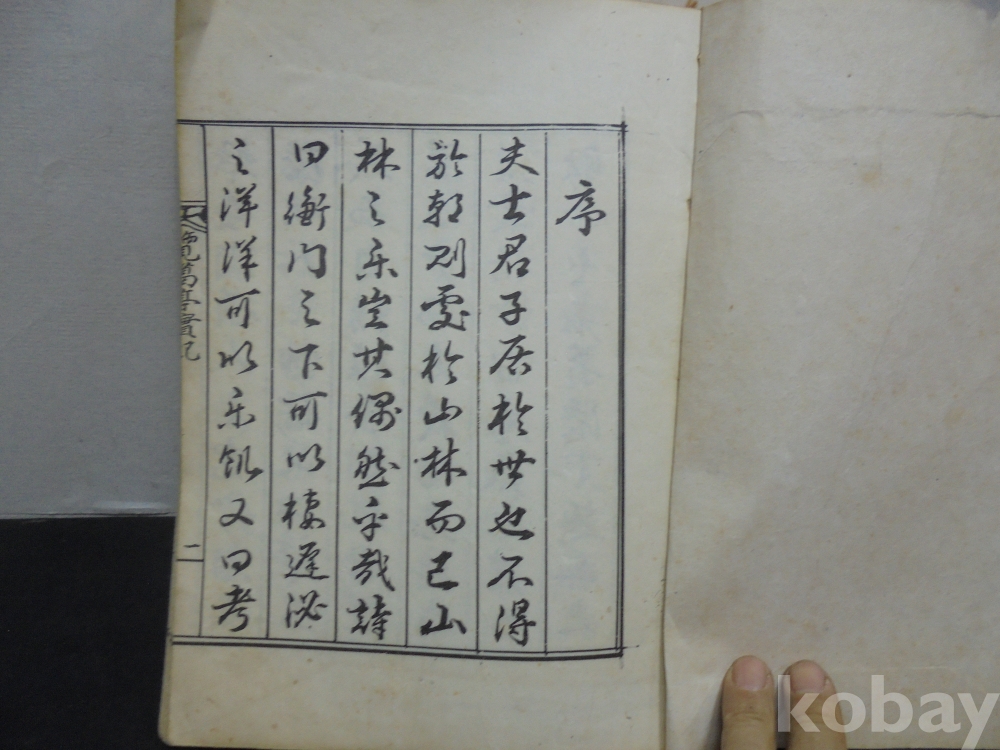 序
夫士君子居於世也不得
於朝則處於山林而已山
林之樂豈其偶然乎哉詩
曰衡門之下可以棲遲泌
之洋洋可以樂飢又曰考
二
kobay